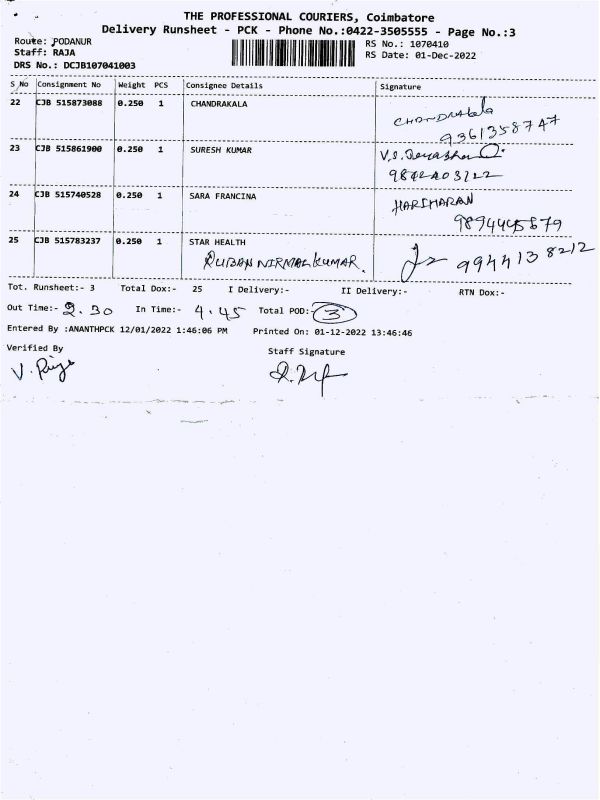 THE PROFESSIONAL COURIERS, Coimbatore
Delivery Runsheet - PCK - Phone No.:0422-3505555 - Page No.:3
Route: PODANUR
RS No.: 1070410
Staff: RAJA
RS Date: 01-Dec-2022
DRS No.: DCJB107041003
S_No Consignment No Weight PCS Consignee Details Signature
22 CJB 515873088 0.250 1 CHANDRAKALA
CHANDRAkala
9361358747
23 CJB 515861900 0.250 1 SURESH KUMAR
V.S.
24 CJB 515740528 0.250 1 SARA FRANCINA
HARIHARAN
25 CJB 515783237 0.250 1 STAR HEALTH
RUBAN NIRMAL KUMAR. 9944138212
Tot. Runsheet:- 3 Total Dox:- 25 I Delivery:- II Delivery:- RTN Dox:-
Out Time:- 2.30 In Time:- 4.45 Total POD:- 3
Entered By :ANANTHPCK 12/01/2022 1:46:06 PM Printed On: 01-12-2022 13:46:46
Verified By Staff Signature